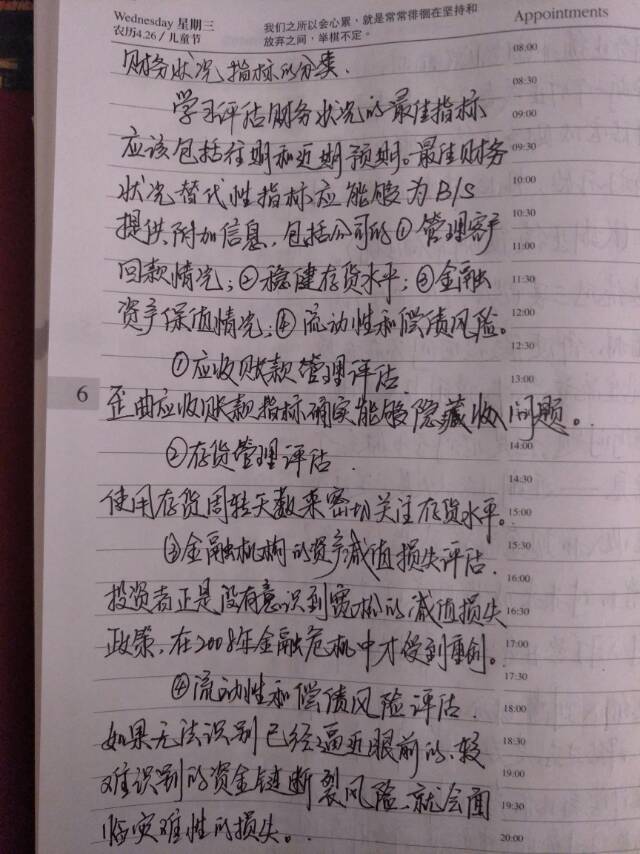 Wednesday 星期三
农历4.26/儿童节
我们之所以会心累，就是常常徘徊在坚持和
放弃之间，举棋不定。
Appointments
财务状况指标的分类.
学习评估财务状况的最佳指标
应该包括往期和近期预期。最佳财务
状况替代性指标应能够为B/S
提供附加信息，包括公司的①管理客户
回款情况；②稳健存货水平；③金融
资产保值情况；④流动性和偿债风险。
①应收账款管理评估
歪曲应收账款指标确实能够隐藏收入问题。
②存货管理评估.
使用存货周转天数来密切关注存货水平。
③金融机构的资产减值损失评估.
投资者正是没有意识到宽松的减值损失
政策，在2008年金融危机中才受到重创。
④流动性和偿债风险评估.
如果无法识别已经逼近眼前的、较
难识别的资金链断裂风险、就会面
临灾难性的损失。
6
08:00
08:30
09:00
09:30
10:00
10:30
11:00
11:30
12:00
12:30
13:00
14:00
14:30
15:00
15:30
16:00
16:30
17:00
17:30
18:00
18:30
19:00
19:30
20:00